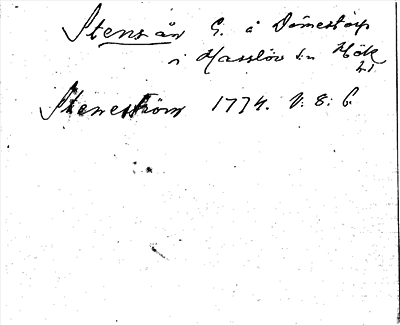 Stensån G. å Dömestorp
i Hasslöv sn Hök
h.
Steneström 1774. V: 8: 6